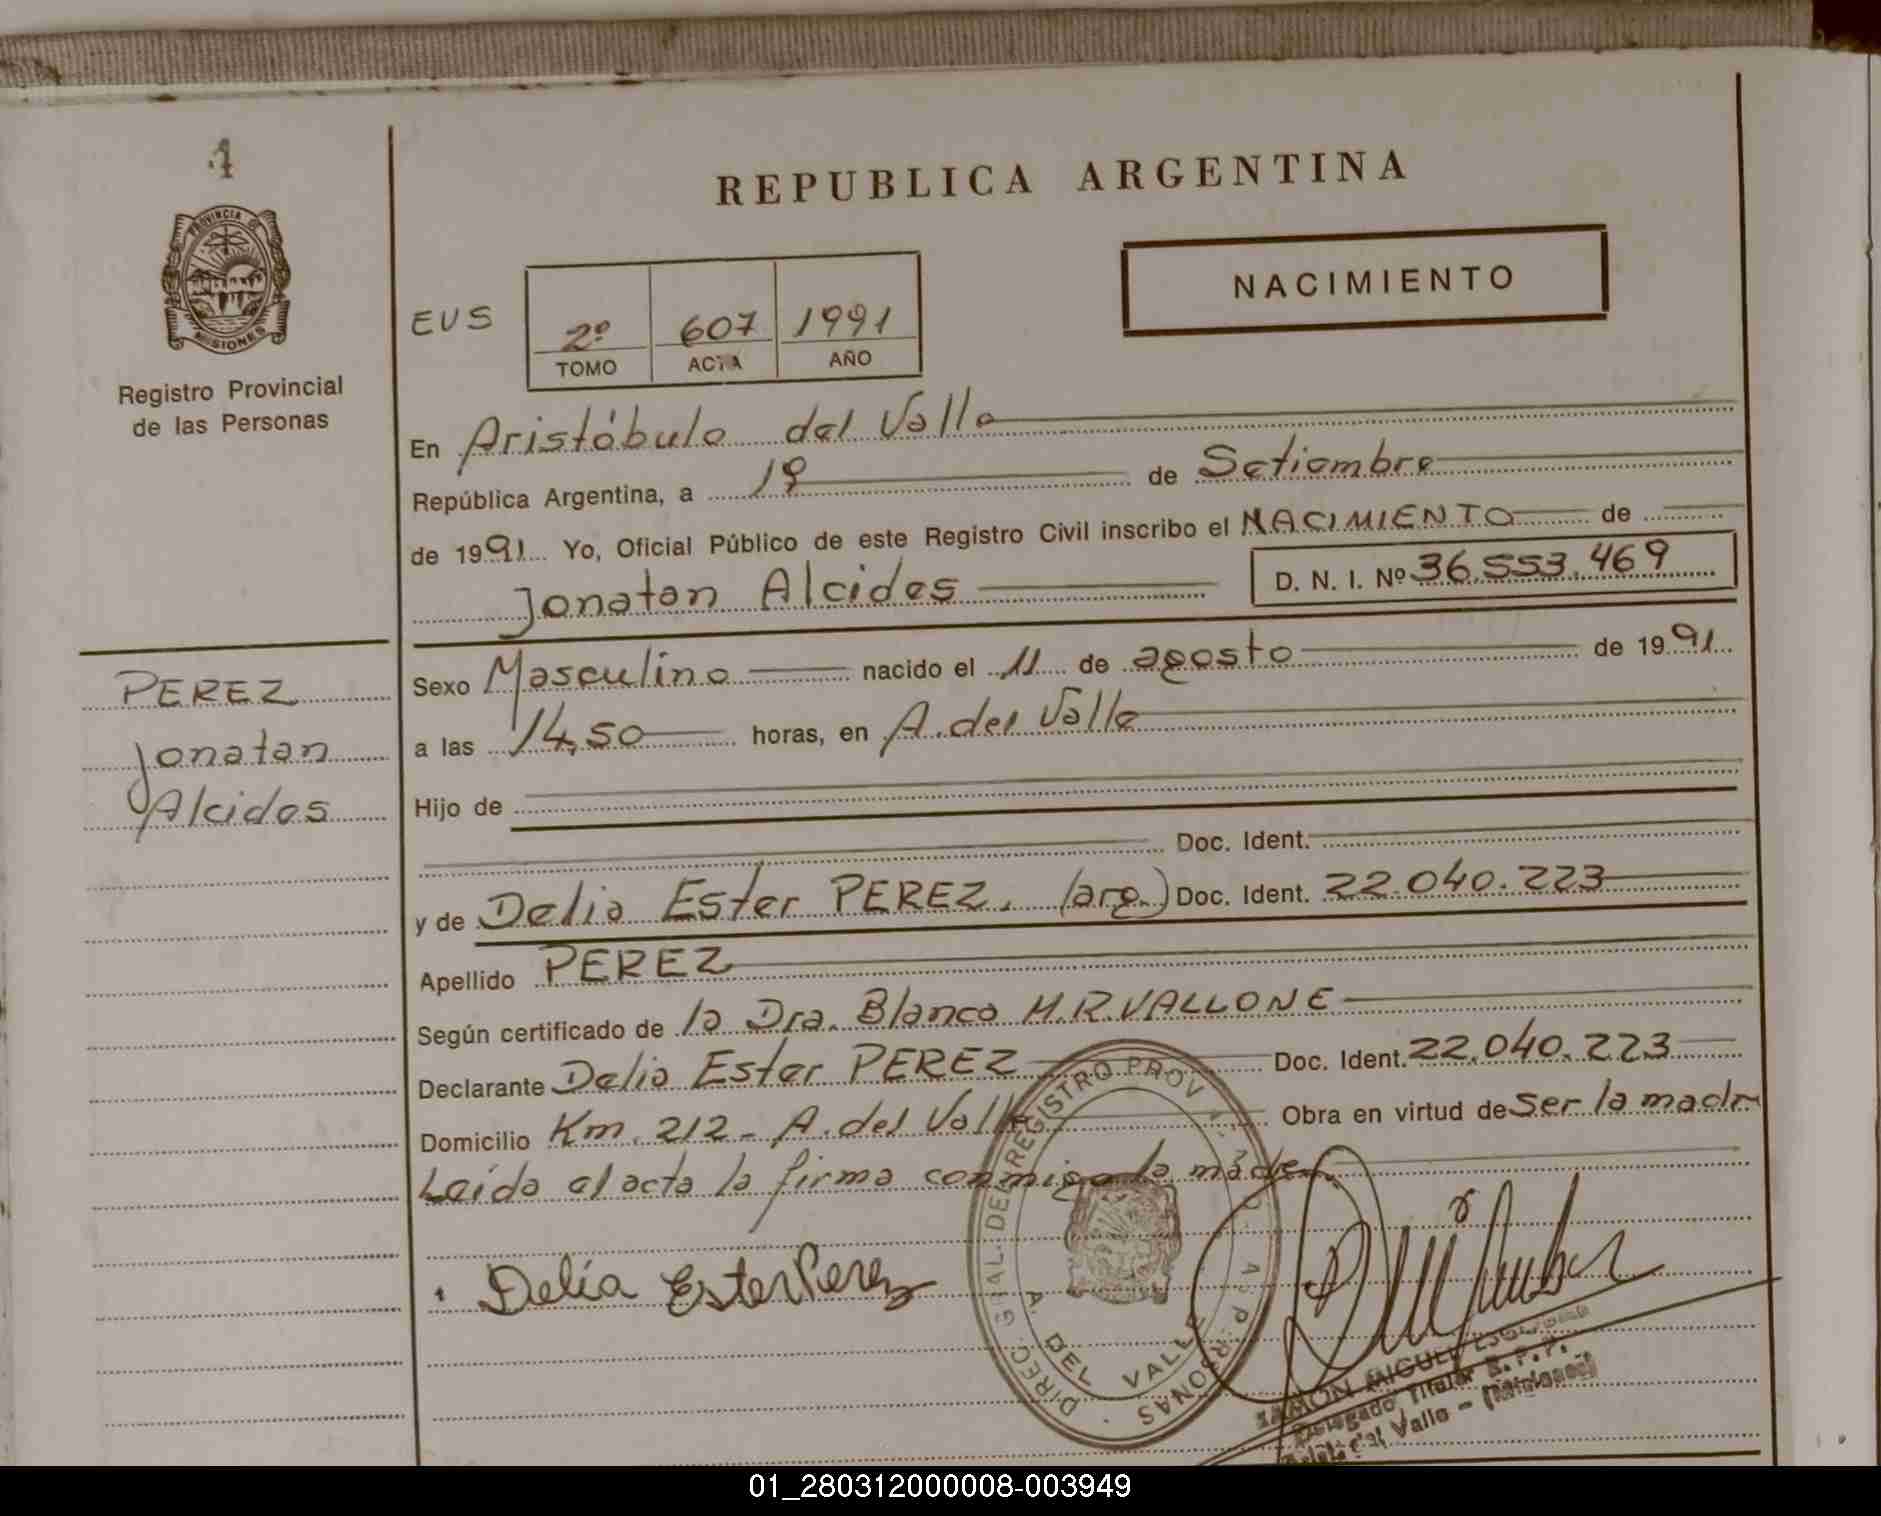 4
PROVINCIA DE
MISIONES
Registro Provincial
de las Personas
PEREZ
Jonatan
Alcides
REPUBLICA ARGENTINA
NACIMIENTO
EUS
2º 607 1991
TOMO ACTA AÑO
En Aristóbulo del Valle
República Argentina, a 1º de Setiembre
de 1991 Yo, Oficial Público de este Registro Civil inscribo el NACIMIENTO de
Jonatan Alcides D. N. I. Nº 36.553.469
Sexo Masculino nacido el 11 de agosto de 1991
a las 14,50 horas, en A. del Valle
Hijo de
Doc. Ident.
y de Delia Ester PEREZ. (arg.) Doc. Ident. 22.040.223
Apellido PEREZ
Según certificado de la Dra. Blanca M.R. VALLONE
Declarante Delia Ester PEREZ Doc. Ident. 22.040.223
Domicilio Km. 212 - A. del Valle Obra en virtud de ser la madre
Leída el acta la firma conmigo la madre
Delia Ester Perez
DIREC. GRAL. DEL REGISTRO PROV
PERSONAS
A. DEL VALLE
RAMON MIGUEL
Delegado Titular R.P.P.
del Valle - (Misiones)
01_280312000008-003949